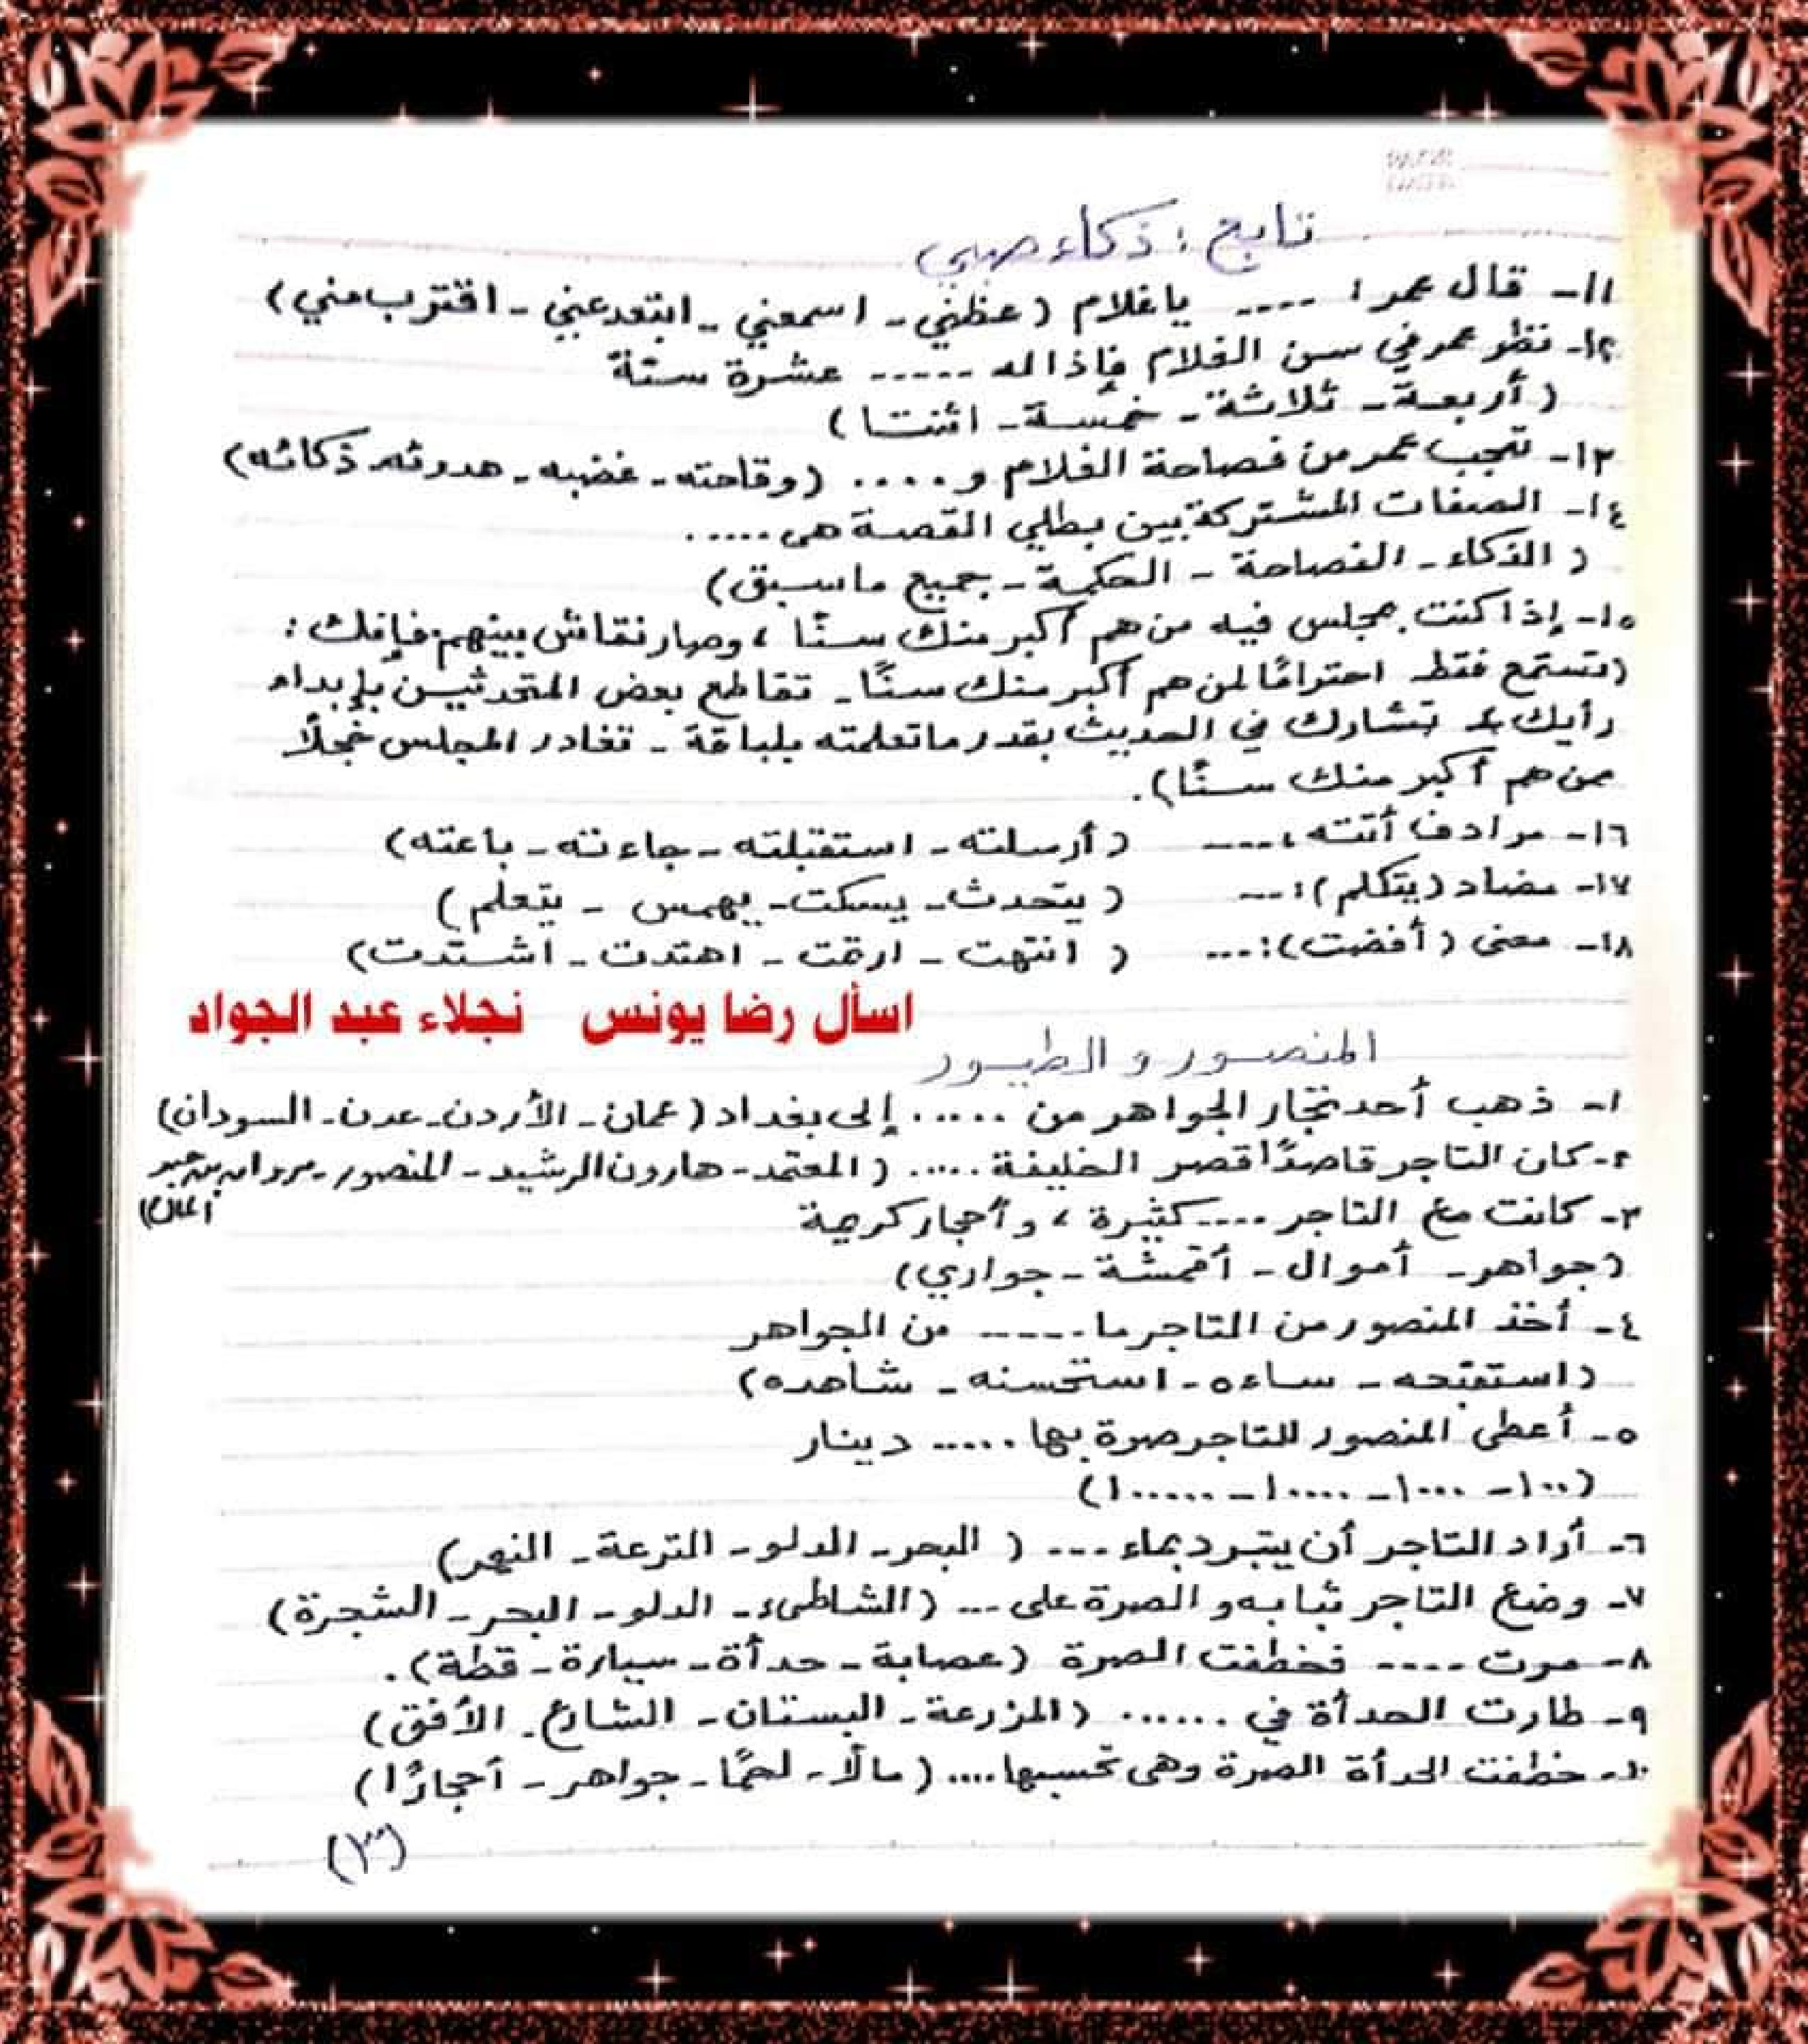 تابع : ذكاء صبي
١١- قال عمر : .... ياغلام (عظني - اسمعني - ابتعد عني - اقترب مني)
١٢- نظر عمر في سن الغلام فإذا له ..... عشرة سنة
(أربعة - ثلاثة - خمسة - اثنتا)
١٣- تعجب عمر من فصاحة الغلام و .... (وقاحته - غضبه - هدوئه - ذكائه)
١٤- الصفات المشتركة بين بطلي القصة هى .....
(الذكاء - الفصاحة - الحكمة - جميع ماسبق)
١٥- إذا كنت بمجلس فيه من هم أكبر منك سنًا ، وصار نقاش بينهم فإنك :
(تستمع فقط احترامًا لمن هم أكبر منك سنًا - تقاطع بعض المتحدثين بإبداء
رأيك - تشارك في الحديث بقدر ماتعلمته بلباقة - تغادر المجلس خجلًا
ممن هم أكبر منك سنًا).
١٦- مرادف أتته : .... (أرسلته - استقبلته - جاءته - باعته)
١٧- مضاد (يتكلم) : ... (يتحدث - يسكت - يهمس - يتعلم)
١٨- معنى (أفضت) : ... (انتهت - ارتمت - اهتدت - اشتدت)
اسأل رضا يونس نجلاء عبد الجواد
المنصور والطيور
١- ذهب أحد تجار الجواهر من ..... إلى بغداد (عمان - الأردن - عدن - السودان)
٢- كان التاجر قاصدًا قصر الخليفة ..... (المعتمد - هارون الرشيد - المنصور - مروان بن عبد
الملك)
٣- كانت مع التاجر .... كثيرة ، وأحجار كريمة
(جواهر - أموال - أقمشة - جواري)
٤- أخذ المنصور من التاجر ما ..... من الجواهر
(استقبحه - ساءه - استحسنه - شاهده)
٥- أعطى المنصور للتاجر صرة بها ..... دينار
(١٠٠ - ١٠٠٠ - ١٠٠٠٠ - ١٠٠٠٠٠)
٦- أراد التاجر أن يتبرد بماء ... (البحر - الدلو - الترعة - النهر)
٧- وضع التاجر ثيابه و الصرة على ... (الشاطىء - الدلو - البحر - الشجرة)
٨- مرت .... فخطفت الصرة (عصابة - حدأة - سيارة - قطة).
٩- طارت الحدأة في ...... (المزرعة - البستان - الشارع - الأفق)
١٠- خطفت الحدأة الصرة وهى تحسبها .... (مالًا - لحمًا - جواهر - أحجارًا)
(٣)